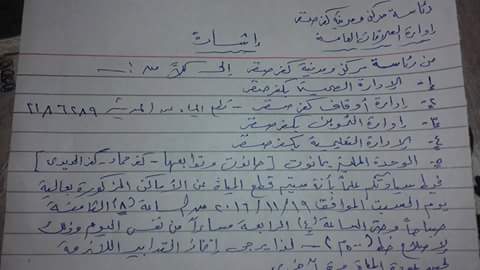 رئاسة مركز ومدينة كفر صقر
إدارة العلاقات العامة
إشارة
من رئاسة مركز ومدينة كفر صقر إلى كلاً من :-
١- الإدارة الصحية بكفر صقر
٢- إدارة أوقاف كفر صقر - ٢١٨٦٢٨٩
٣- إدارة التموين بكفر صقر
٤- الإدارة التعليمية بكفر صقر
٥- الوحدة المحلية بحانوت [حانوت وتوابعها - كفر حماد - كفر الحديدى]
نحيط سيادتكم علماً بأنه سيتم قطع المياه عن الأماكن المذكورة بعاليه
يوم السبت الموافق ٢٠١٦/١١/١٩ من الساعة (٨) الثامنة
صباحاً وحتى الساعة (٤) الرابعة مساءاً من نفس اليوم وذلك
لإصلاح خط - لذا يرجى إتخاذ التدابير اللازمة